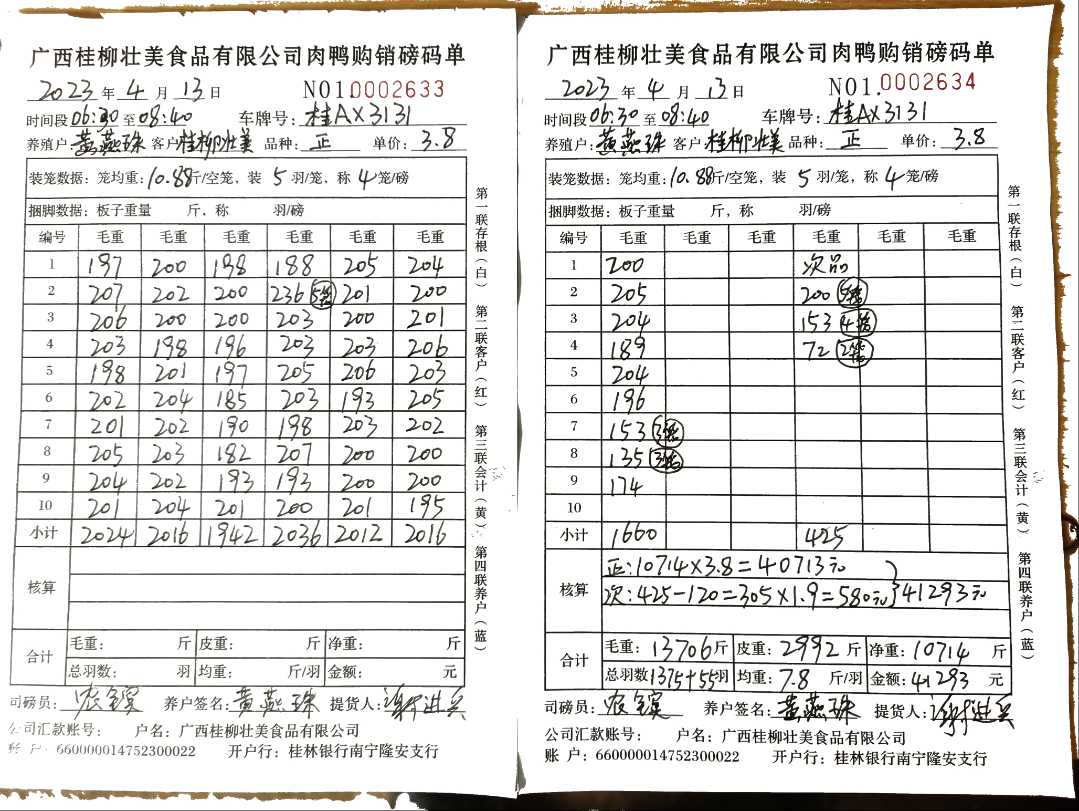 广西桂柳壮美食品有限公司肉鸭购销磅码单
2023 年 4 月 13 日 NO1.0002633
时间段 06:30 至 08:40 车牌号: 桂AX3131
养殖户: 黄燕珠 客户 桂柳壮美 品种: 正 单价: 3.8
装笼数据: 笼均重: 10.88 斤/空笼, 装 5 羽/笼, 称 4 笼/磅
捆脚数据: 板子重量 斤, 称 羽/磅
编号 毛重 毛重 毛重 毛重 毛重 毛重
1 197 200 198 188 205 204
2 207 202 200 236 5笼 201 200
3 206 200 200 203 200 201
4 203 198 196 203 203 206
5 198 201 197 205 206 203
6 202 204 185 203 193 205
7 201 202 190 198 203 202
8 205 203 182 207 200 200
9 204 202 193 193 200 200
10 201 204 201 200 201 195
小计 2024 2016 1942 2036 2012 2016
核算
合计 毛重: 斤 皮重: 斤 净重: 斤
总羽数: 羽 均重: 斤/羽 金额: 元
司磅员: 农宝宾 养户签名: 黄燕珠 提货人:
公司汇款账号: 户名: 广西桂柳壮美食品有限公司
账 户: 660000014752300022 开户行: 桂林银行南宁隆安支行
第一联存根(白) 第二联客户(红) 第三联会计(黄) 第四联养户(蓝)
广西桂柳壮美食品有限公司肉鸭购销磅码单
2023 年 4 月 13 日 NO1.0002634
时间段 06:30 至 08:40 车牌号: 桂AX3131
养殖户: 黄燕珠 客户: 桂柳壮美 品种: 正 单价: 3.8
装笼数据: 笼均重: 10.88 斤/空笼, 装 5 羽/笼, 称 4 笼/磅
捆脚数据: 板子重量 斤, 称 羽/磅
编号 毛重 毛重 毛重 毛重 毛重 毛重
1 200 次品
2 205 200 5笼
3 204 153 4笼
4 189 72 2笼
5 204
6 196
7 153 3笼
8 135 3笼
9 174
10
小计 1660 425
核算 正:10714×3.8=40713元
次:425-120=305×1.9=580元 }41293元
合计 毛重: 13706 斤 皮重: 2992 斤 净重: 10714 斤
总羽数 1375+55 羽 均重: 7.8 斤/羽 金额: 41293 元
司磅员: 农宝宾 养户签名: 黄燕珠 提货人:
公司汇款账号: 户名: 广西桂柳壮美食品有限公司
账 户: 660000014752300022 开户行: 桂林银行南宁隆安支行
第一联存根(白) 第二联客户(红) 第三联会计(黄) 第四联养户(蓝)